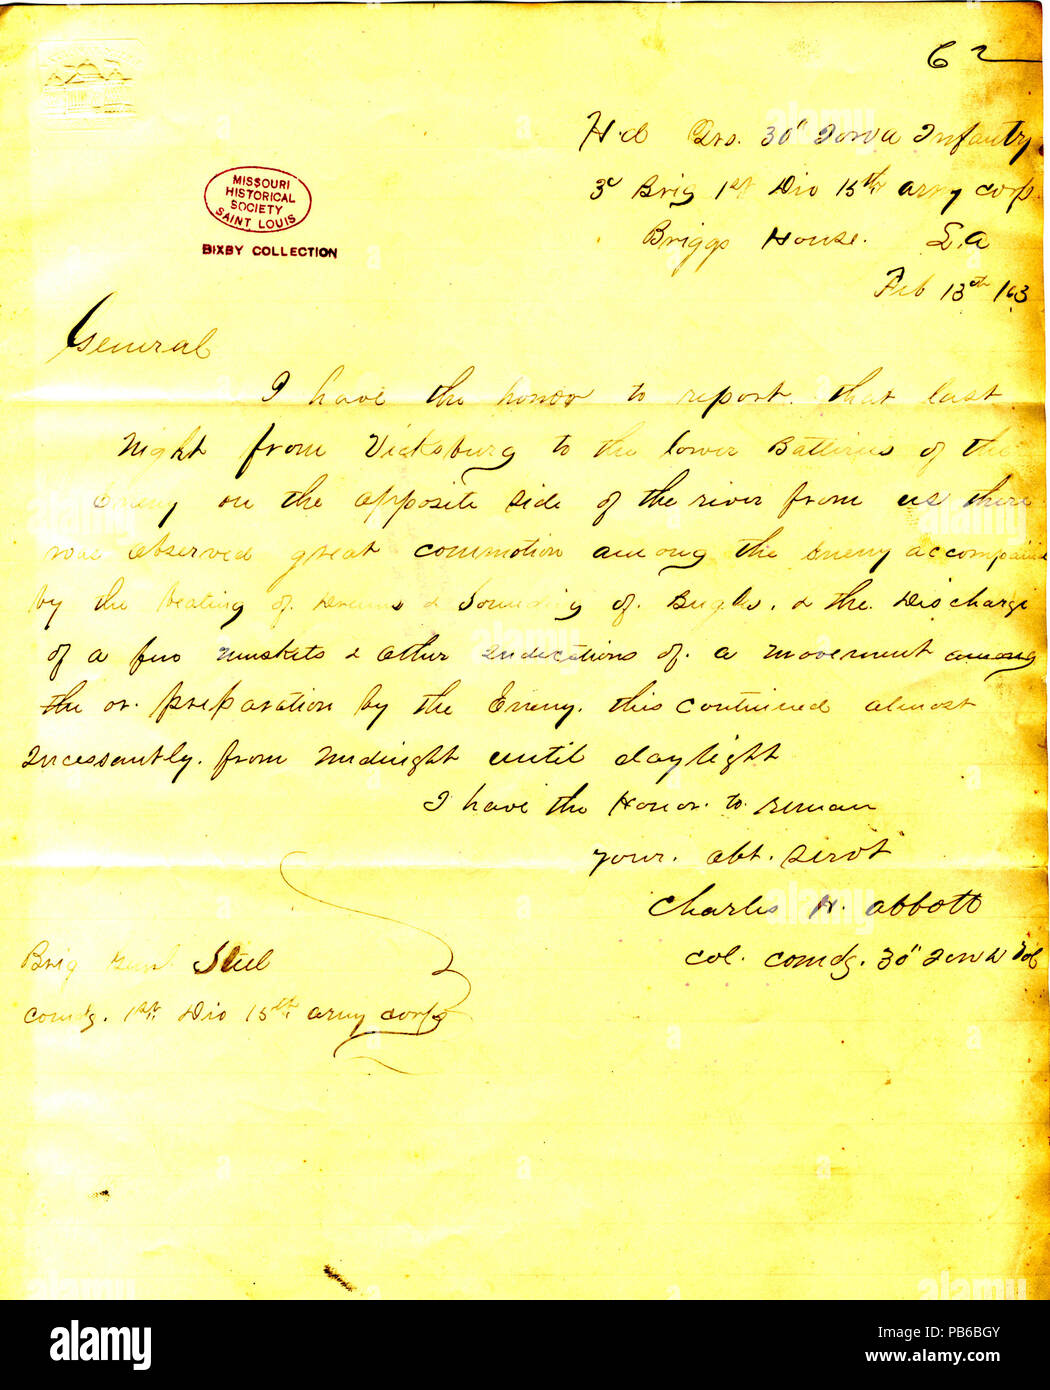 62
MISSOURI
HISTORICAL
SOCIETY
SAINT LOUIS
BIXBY COLLECTION
Hd Qrs. 30" Iowa Infantry
3d Brig 1st Div 15th army corp.
Briggs House. La
Feb 13th /63
General
I have the honor to report. that last
night from Vicksburg to the lower Batteries of the
Enemy on the opposite side of the river from us there
was observed great commotion among the Enemy accompanied
by the beating of Drums & Sounding of Bugles. & the Discharge
of a few muskets & other Indications of a movement among
the or. preparation by the Enemy. this continued almost
Incessantly. from midnight until daylight
I have the Honor. to remain
your. obt. servt
Charles H. Abbott
Col. comdg. 30" Iowa Vol
Brig Genl Steel
comdg. 1st. Div 15th. army corps
alamy
Image ID: PB6BGY
www.alamy.com